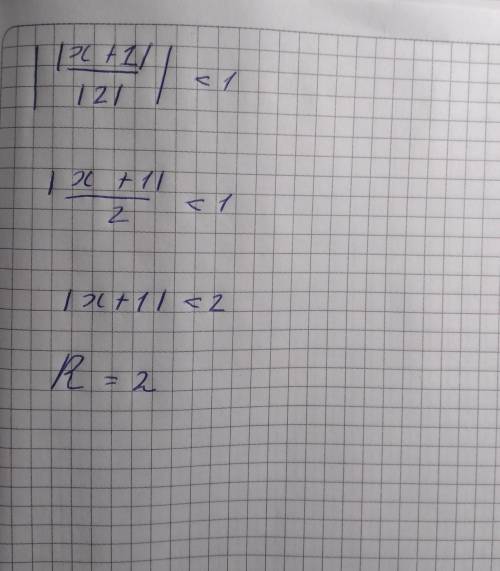 | |x+1| / |2| | < 1
|x +1| / 2 < 1
|x+1| < 2
R = 2